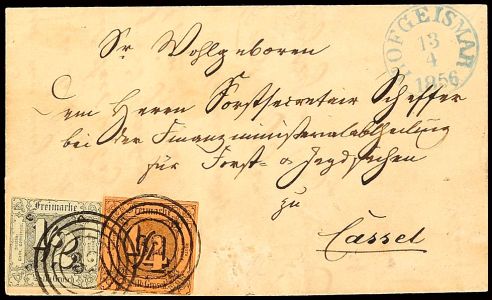 HOFGEISMAR
13
4
1856
Sr. Wohlgeboren
Dem Herrn Forstsecretair Scheffer
bei der Finanzministerialabtheilung
für Forst- & Jagdsachen
zu
Cassel
Freimarke